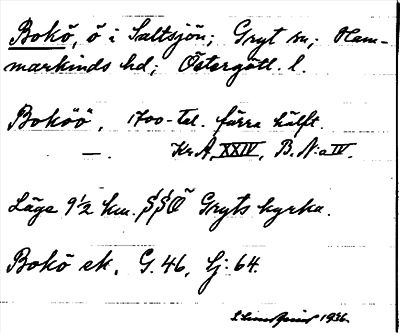 Bokö, ö i Saltsjön; Gryt sn; Ham-
markinds hd; Östergötl. l.
Boköö, 1700-tal. förra hälft.
—. Kr.A. XXIV, B. N:o IV.
Läge 9 1/2 km. SSO Gryts kyrka.
Bokö sk. G. 46, Sj: 64.
1936.